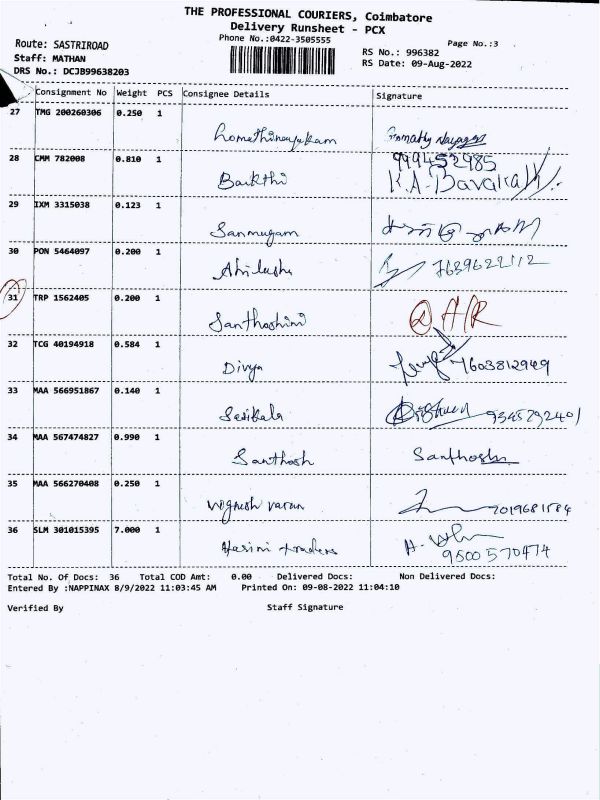 THE PROFESSIONAL COURIERS, Coimbatore
Delivery Runsheet - PCX
Phone No.:0422-3505555
Page No.:3
Route: SASTRIROAD
RS No.: 996382
Staff: MATHAN
RS Date: 09-Aug-2022
DRS No.: DCJB99638203
Consignment No Weight PCS Consignee Details Signature
27 TMG 200260306 0.250 1
28 CMM 782008 0.810 1 999452985
Barkthi K.A-
29 IXM 3315038 0.123 1
Sanmugam
30 PON 5464097 0.200 1
Abilasha 7639622112
31 TRP 1562405 0.200 1
Santhoshini
32 TCG 40194918 0.584 1
Divya 7603812949
33 MAA 566951867 0.140 1
Sasikala 9345792401
34 MAA 567474827 0.990 1
Santhosh Santhosh
35 MAA 566270408 0.250 1
Vignesh varan 7019681584
36 SLM 301015395 7.000 1
Harini traders 9500570474
Total No. Of Docs: 36 Total COD Amt: 0.00 Delivered Docs: Non Delivered Docs:
Entered By :NAPPINAX 8/9/2022 11:03:45 AM Printed On: 09-08-2022 11:04:10
Verified By Staff Signature